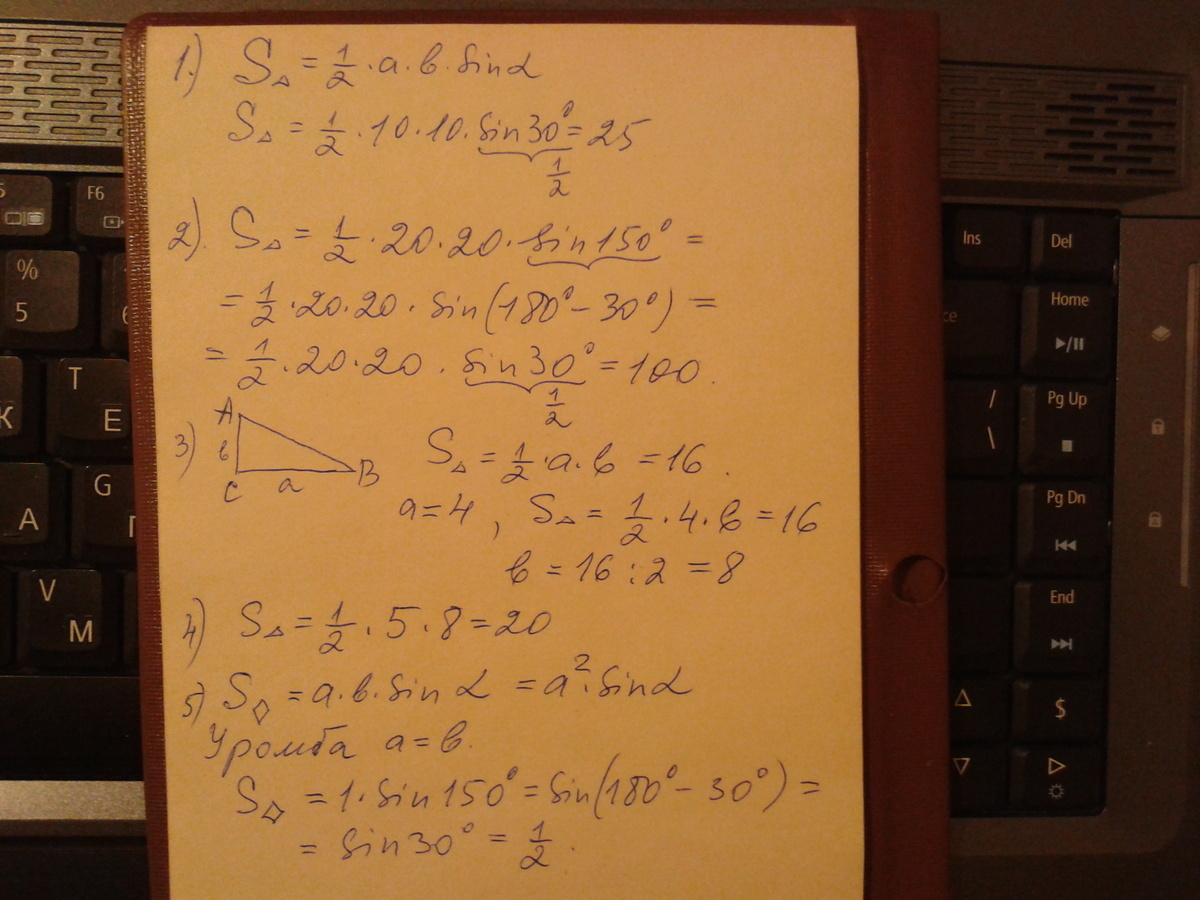 1.) S△ = 1/2 · a · b · sin α
S△ = 1/2 · 10 · 10 · sin 30° = 25
1/2
2). S△ = 1/2 · 20 · 20 · sin 150° =
= 1/2 · 20 · 20 · sin (180° − 30°) =
= 1/2 · 20 · 20 · sin 30° = 100.
1/2
3) A b C a B
S△ = 1/2 · a · b = 16.
a = 4, S△ = 1/2 · 4 · b = 16
b = 16 : 2 = 8
4) S△ = 1/2 · 5 · 8 = 20
5) S◇ = a · b · sin α = a² · sin α
У ромба a = b.
S◇ = 1 · sin 150° = sin (180° − 30°) =
= sin 30° = 1/2.
F6
%
5
6
T
E
К
G
А
V
М
Ins
Del
Home
/
\
Pg Up
Pg Dn
End
$